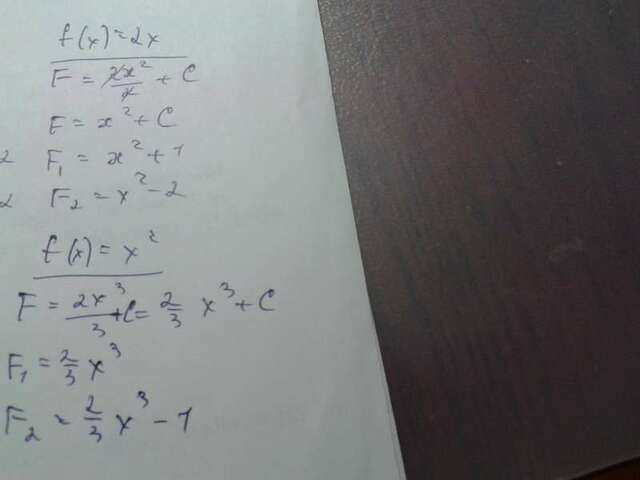 f(x)=2x
F = 2x²/2 + C
F = x² + C
2 F₁ = x² + 1
2 F₂ = x² - 2
f(x) = x²
F = 2x³/3 + C = 2/3 x³ + C
F₁ = 2/3 x³
F₂ = 2/3 x³ - 1